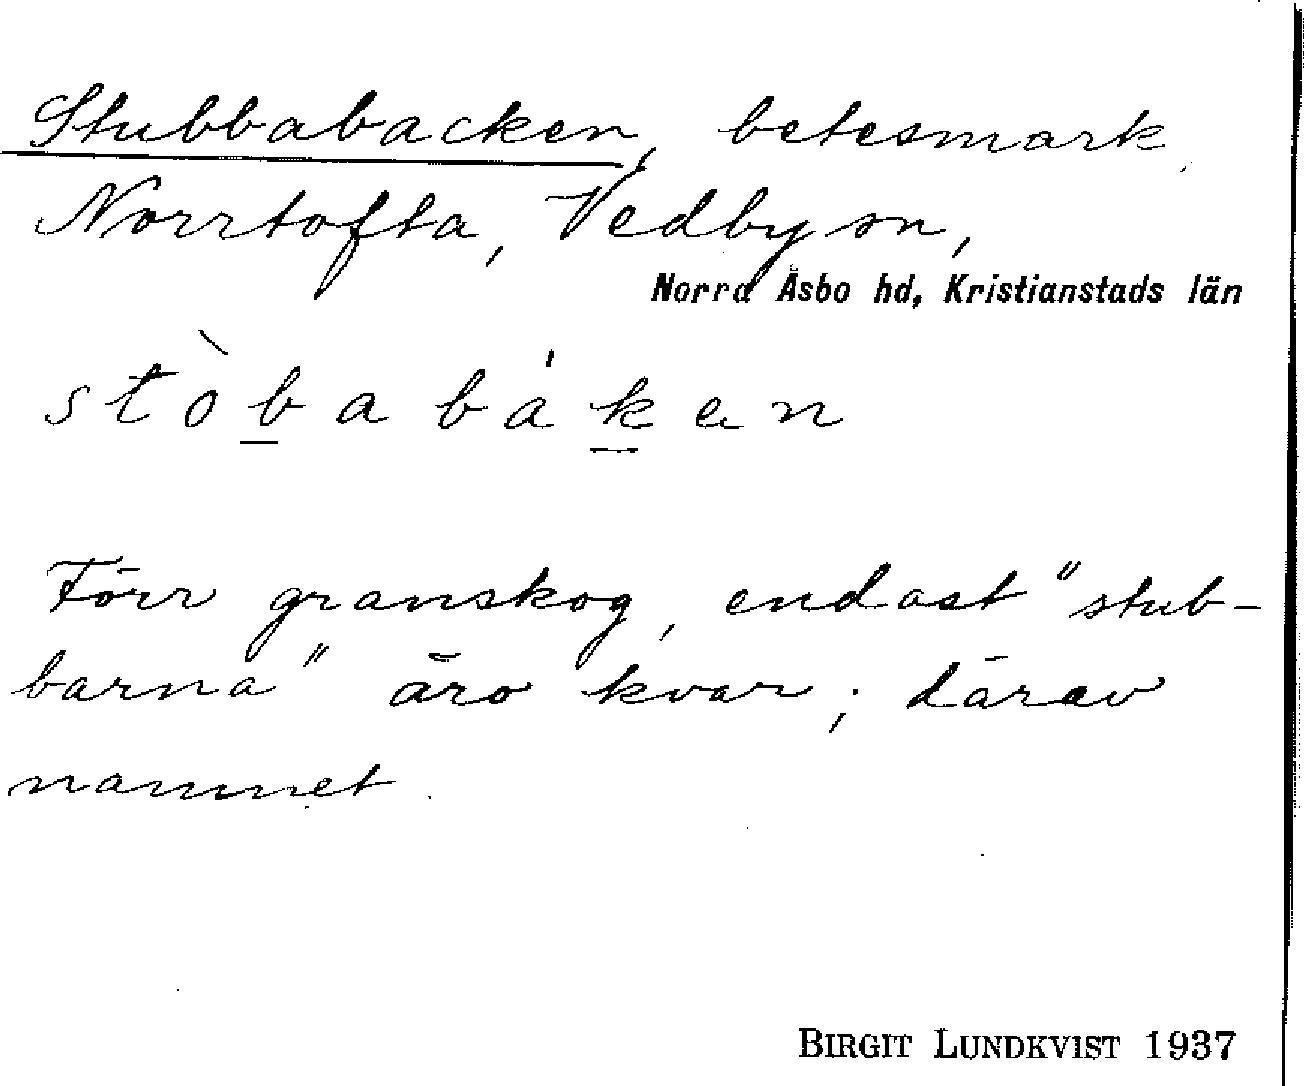 Stubbabacken, betesmark
Norrtofta, Vedby sn,
Norra Åsbo hd, Kristianstads län
stòbabáken
Förr granskog, endast "stub-
barna" äro kvar; därav
namnet.
BIRGIT LUNDKVIST 1937